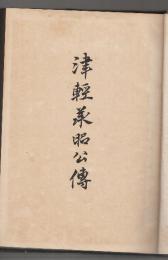 津輕承昭公傳